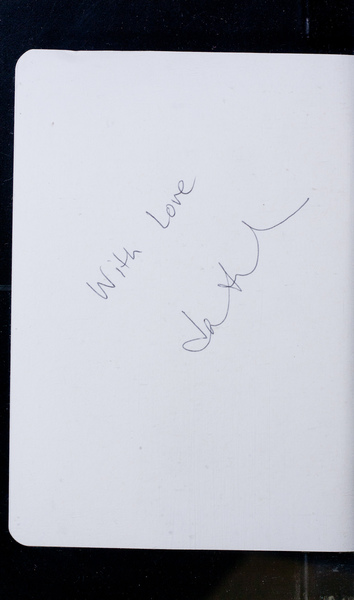 With Love